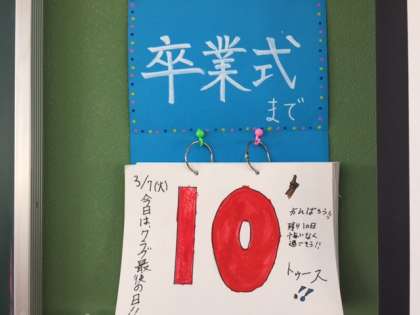 卒業式
まで
3/7(火)
今日は、クラブ最後の日!!
10
がんばろう
残り10日
悔いなく
過そう!!
トゥース
!!